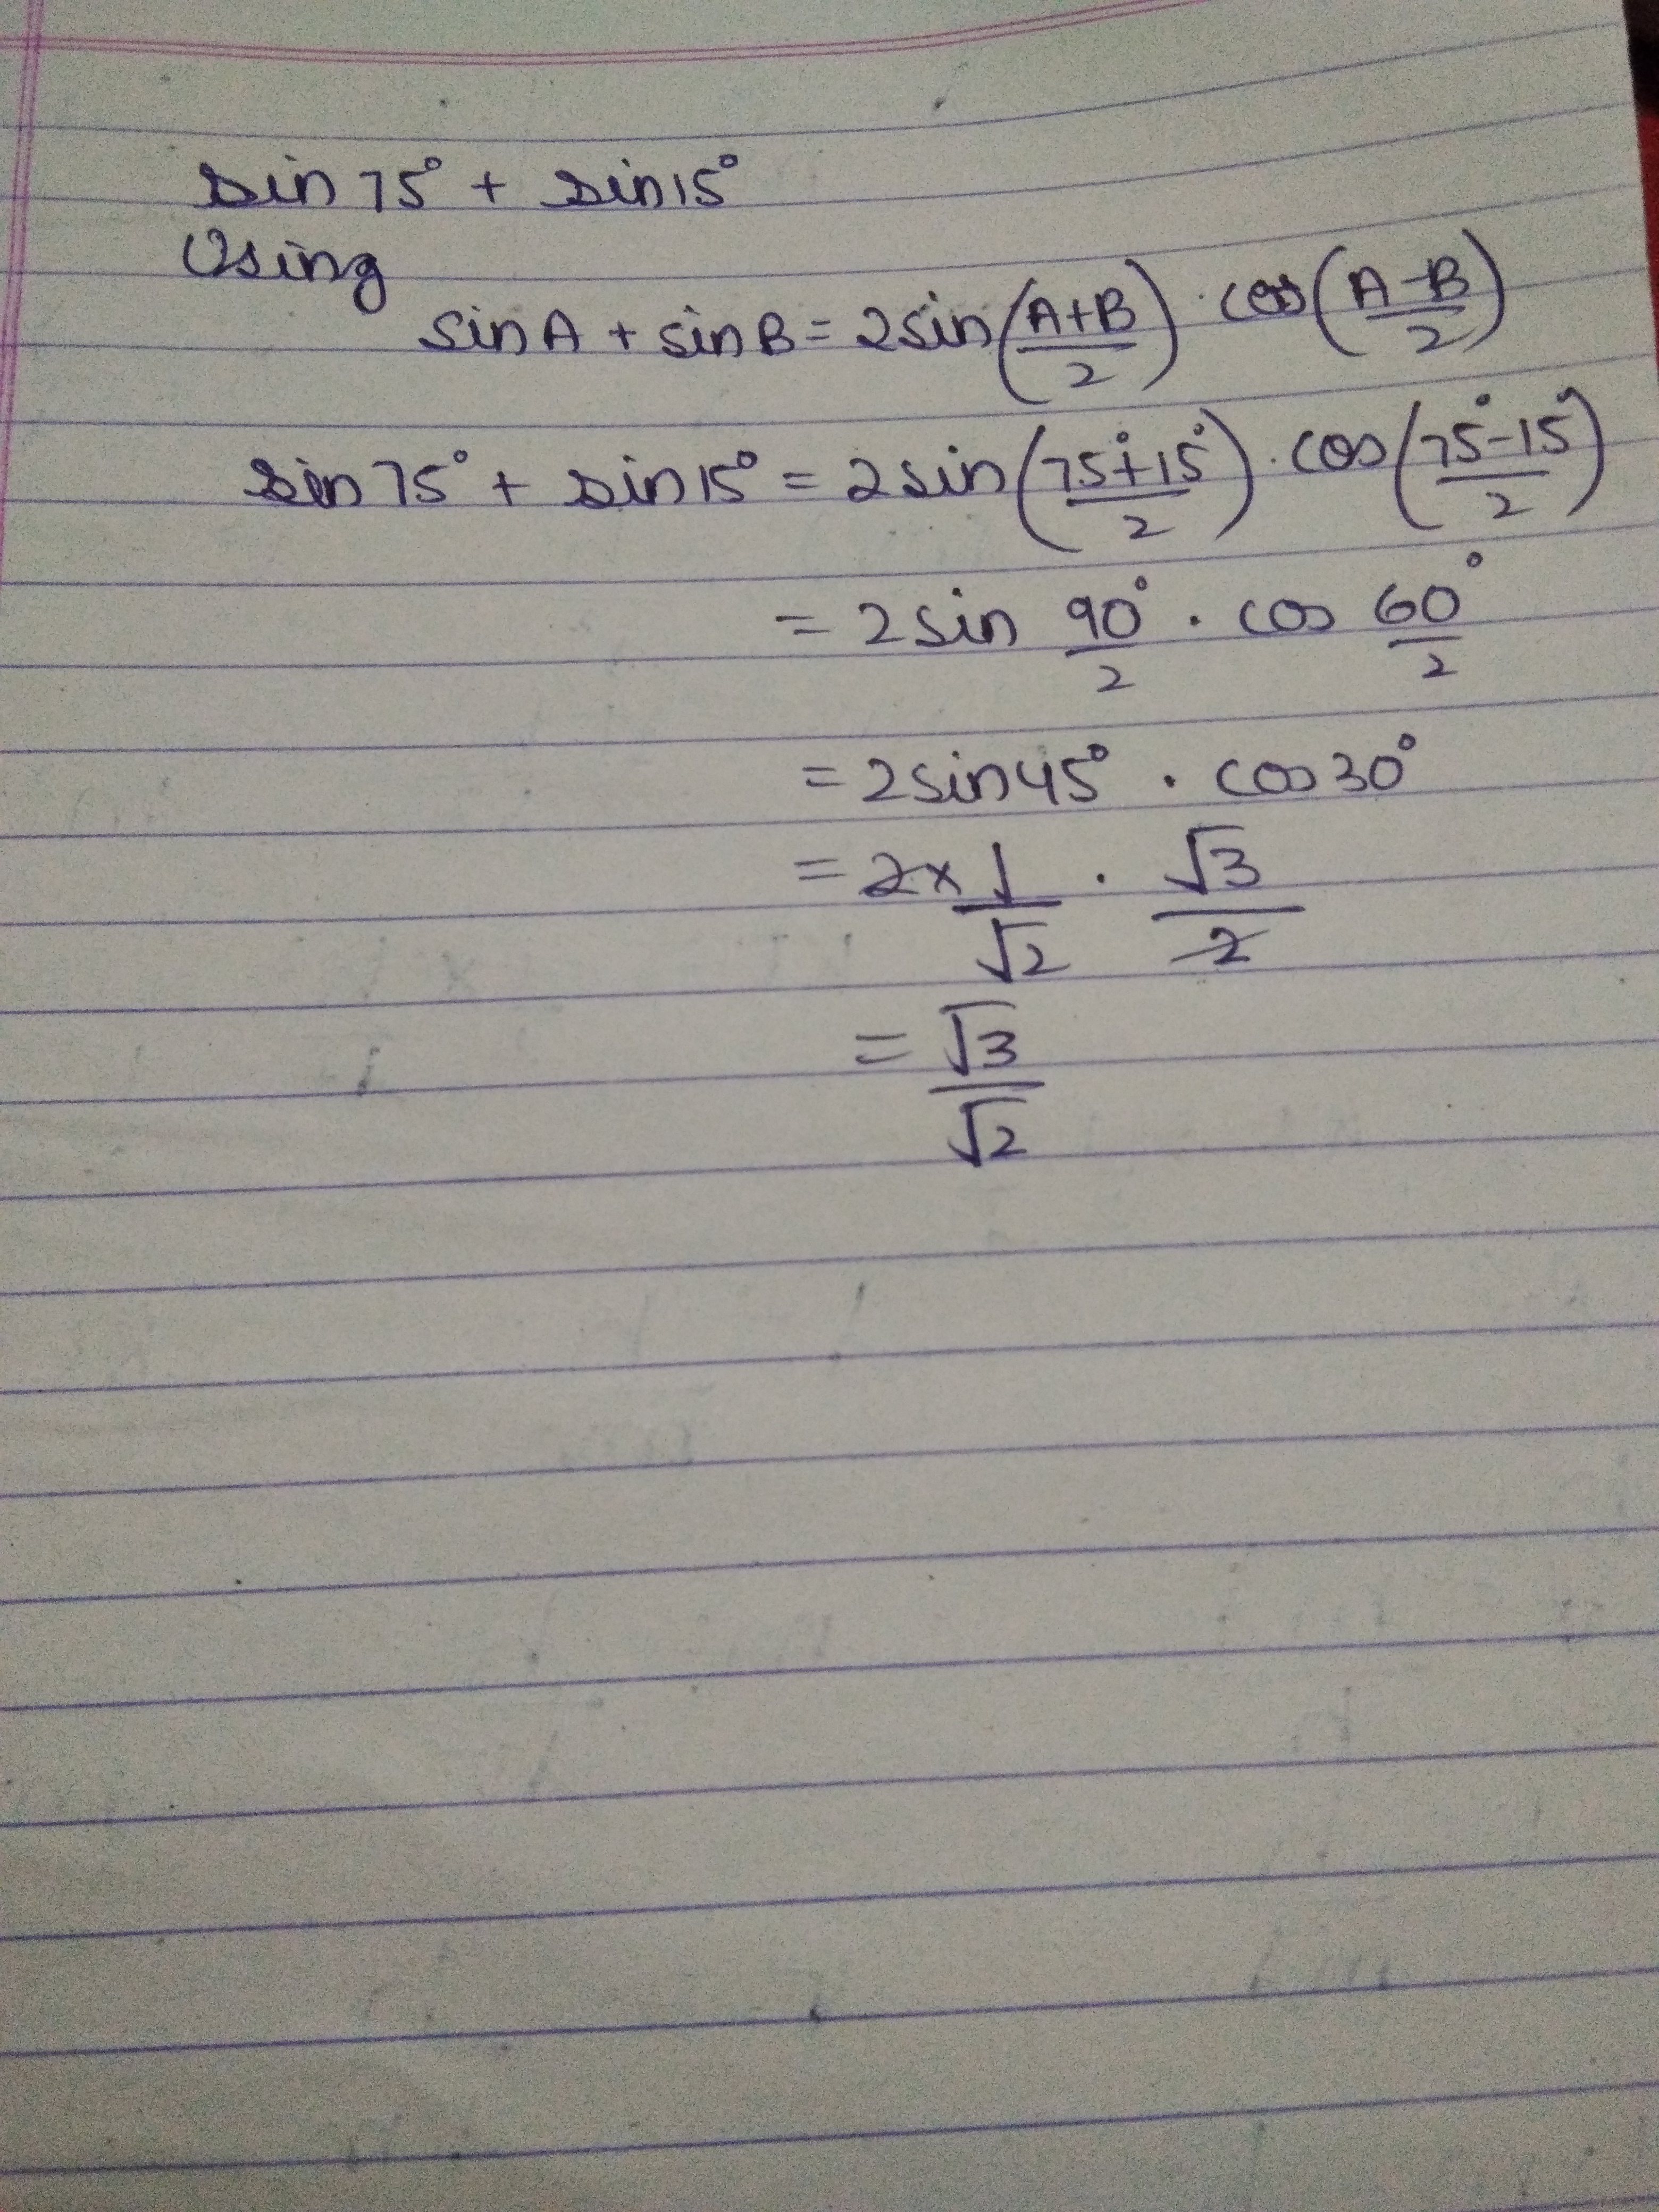 sin 75° + sin 15°
Using
sin A + sin B = 2 sin (A+B/2) · cos (A-B/2)
sin 75° + sin 15° = 2 sin (75°+15°/2) · cos (75°-15°/2)
= 2 sin 90°/2 · cos 60°/2
= 2 sin 45° · cos 30°
= 2 × 1/√2 · √3/2
= √3/√2